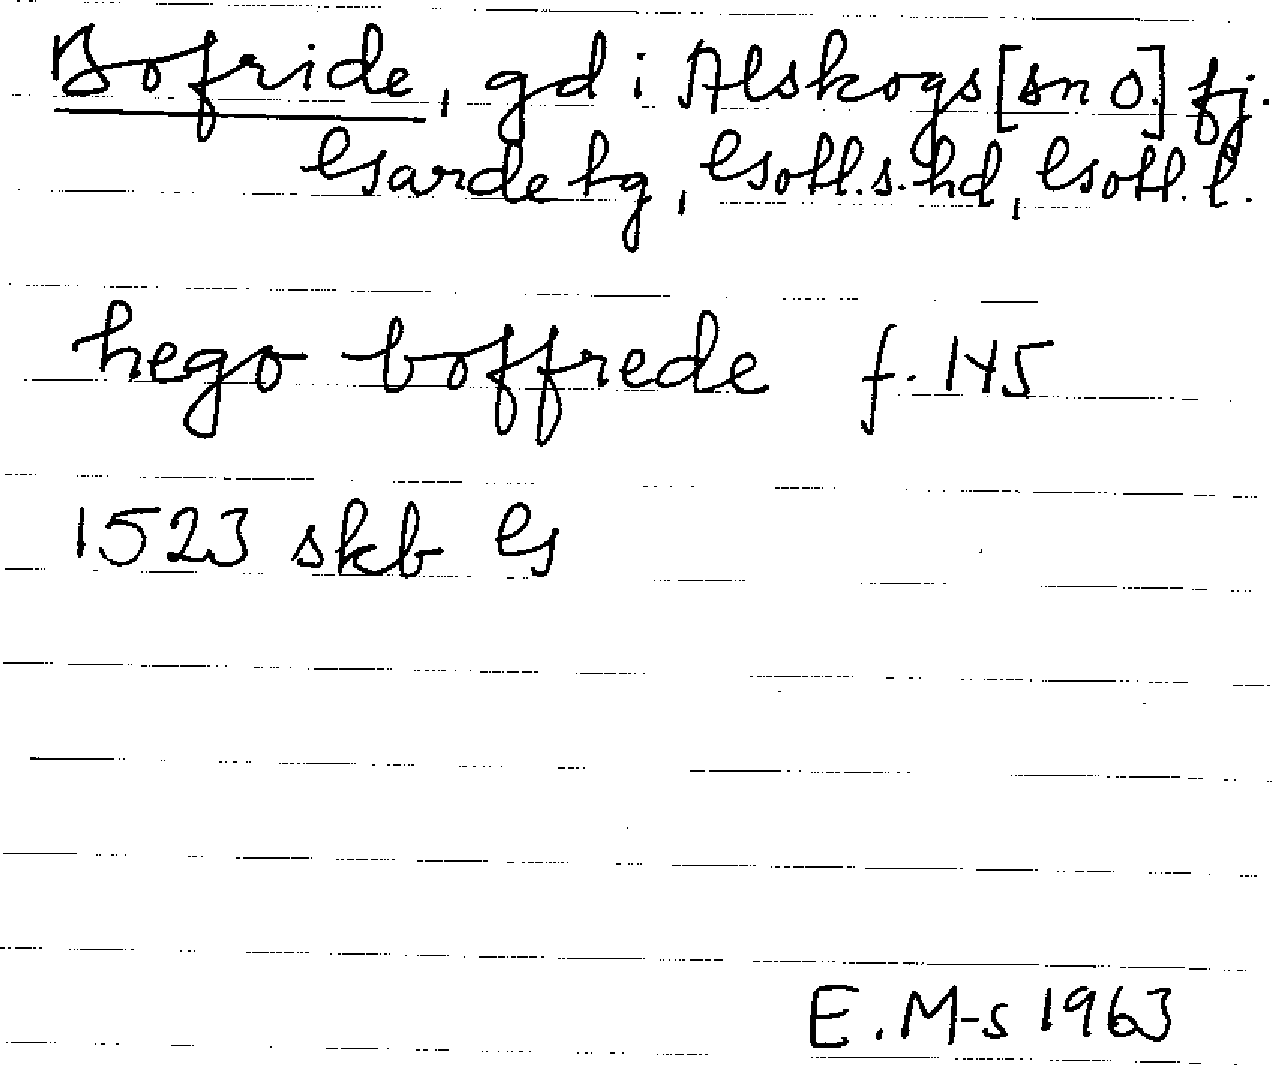 Bofride, gd i Alskogs [sn o.] fj.
Garde tg, Gotl.s.hd, Gotl. l.
hego boffrede f. 145
1523 skb G
E. M-s 1963